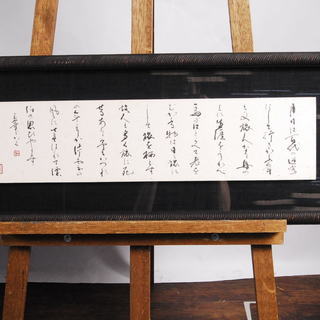 月日は百代の過客
にして行かふ年も
又旅人也舟の
上に生涯をうかべ
馬の口とらえて老を
むかふる物は日々旅に
して旅を栖とす
古人も多く旅に死
せるあり予もいづれ
の年よりか片雲の
風にさそはれて漂
泊の思ひやまず